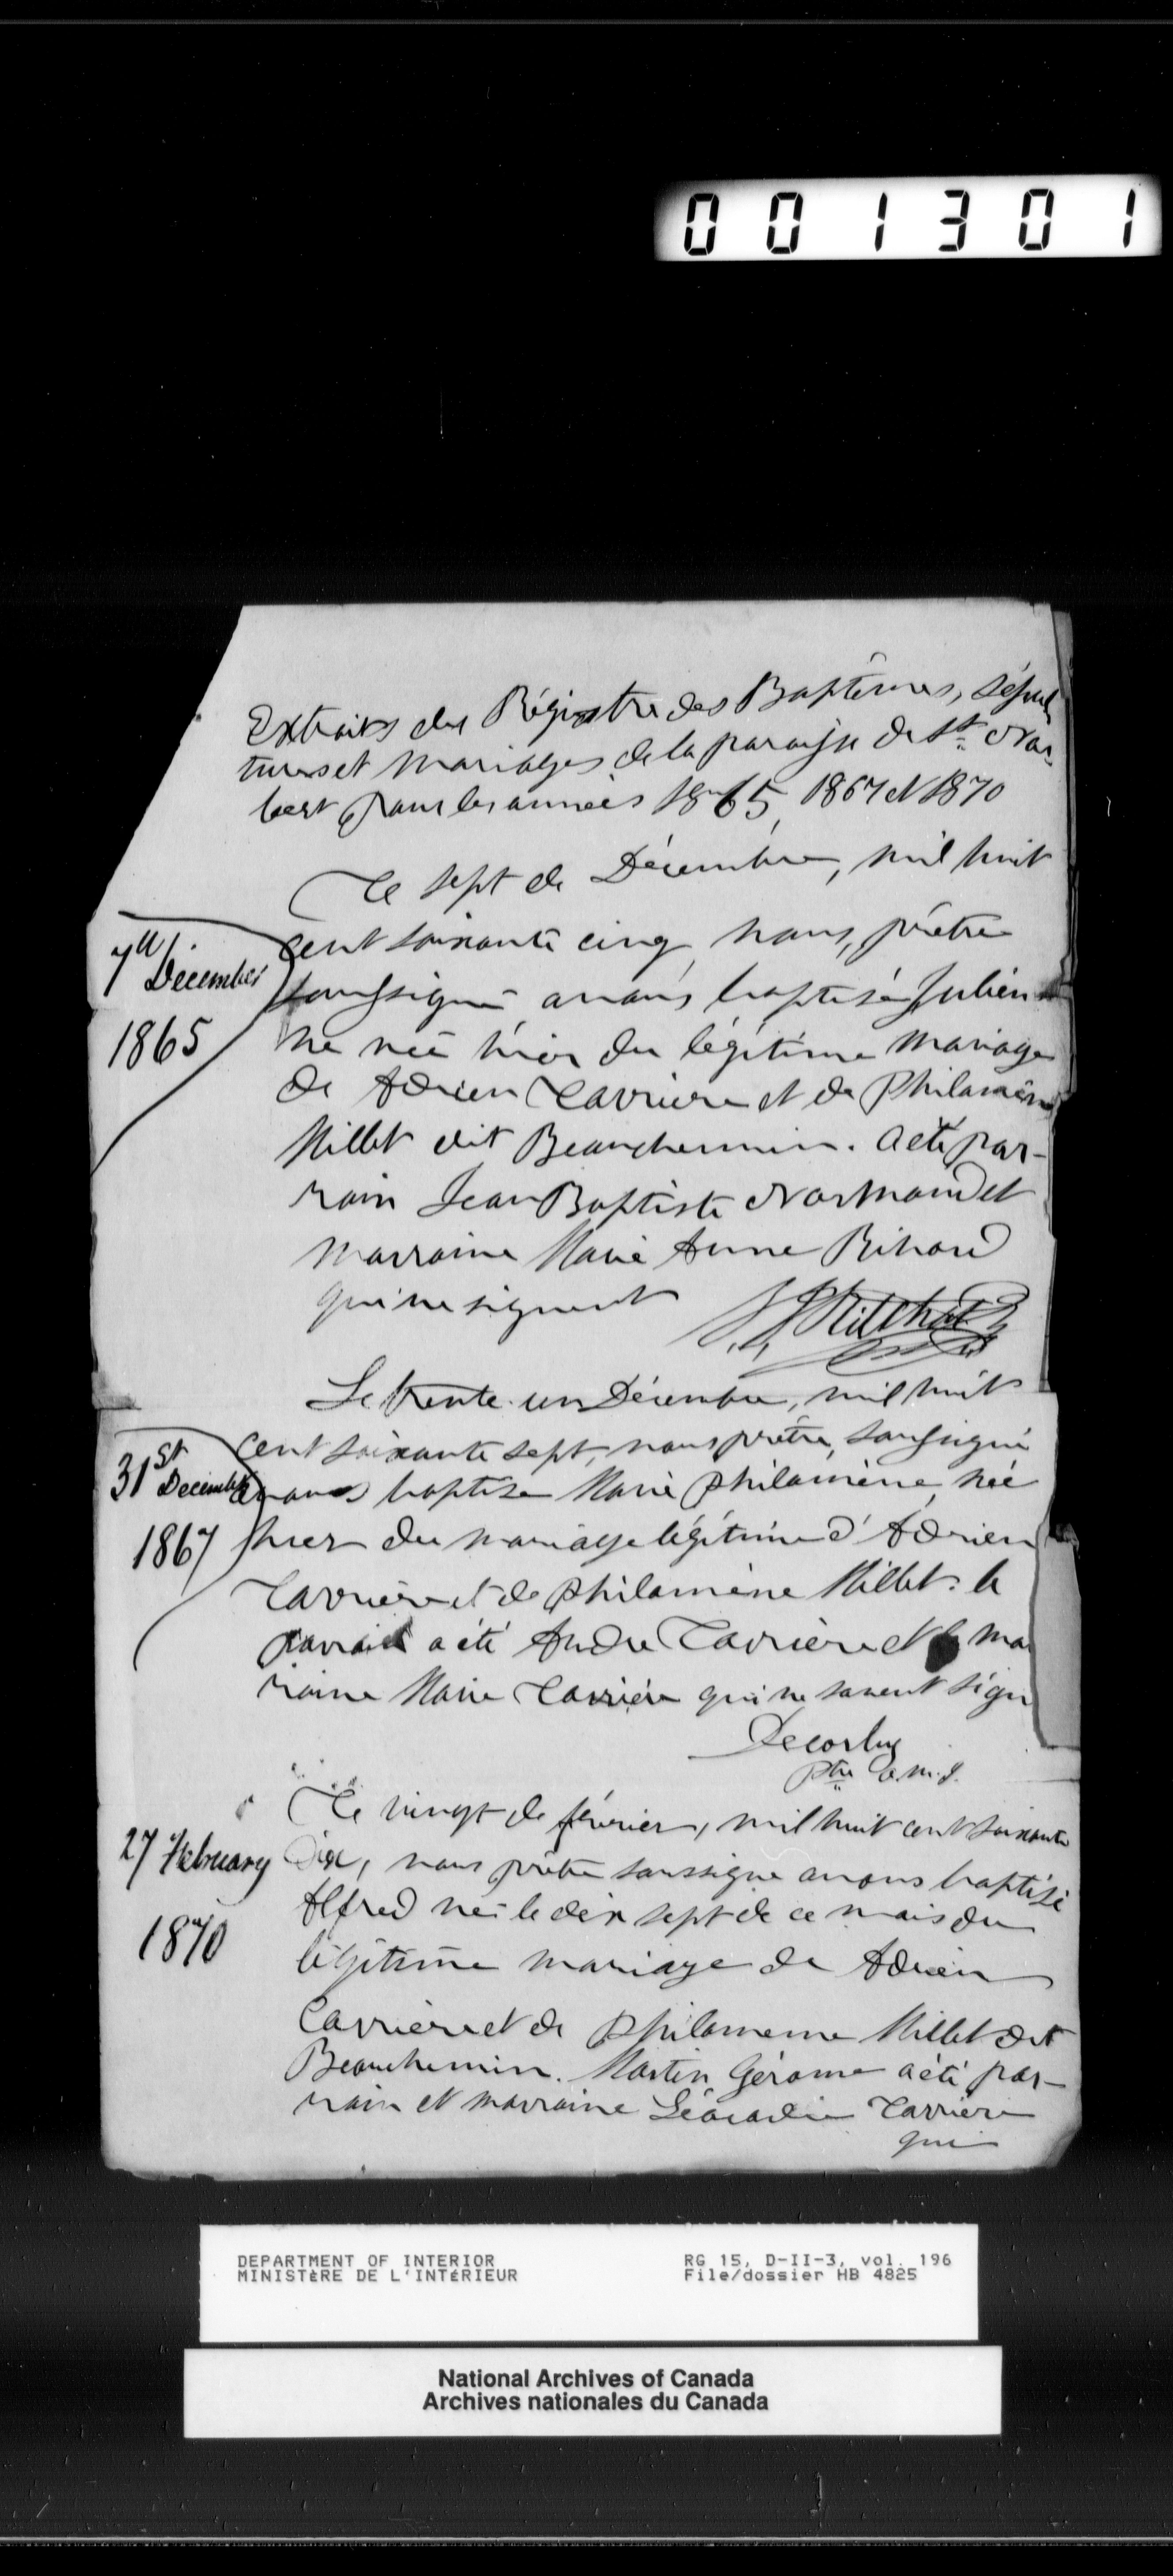 001301
Extraits du Régistre des Baptêmes, sépul
tures et Mariages de la paroisse de St. Nor-
bert pour les années 1865, 1867 et 1870
Le sept de Décembre, mil huit
cent soixante cinq, nous, prêtre
soussigné avons baptisé Julien
ne née hier du légitime mariage
de Adrien Carrière et de Philamène
Millet dit Beauchemin. a été par-
rain Jean Baptiste Normand et
marraine Marie Anne Richard
qui ne signent
J. Ritchot
7th December
1865
Le trente-un Décembre, mil huit
cent soixante sept, nous prêtre, soussigné
avons baptisé Marie Philamène, née
hier du mariage légitime d'Adrien
Carrière et de Philamène Millet. le
parrain a été André Carrière et la mar
raine Marie Carrière qui ne savent sign
Decorby
ptre o.m.i.
31st December
1867
Le vingt de février, mil huit cent soixante
Dix, nous prêtre soussigné avons baptisé
Alfred né le dix sept de ce mois du
légitime mariage de Adrien
Carrière et de Philomene Millet dit
Beauchemin. Martin Gérome a été par-
rain et marraine Léocadie Carrière
qui
27 February
1870
DEPARTMENT OF INTERIOR
MINISTÈRE DE L'INTÉRIEUR
RG 15, D-II-3, vol. 196
File/dossier HB 4825
National Archives of Canada
Archives nationales du Canada